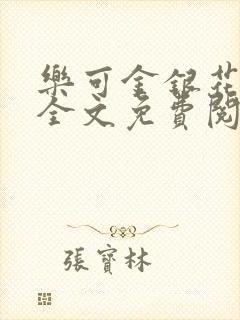 樂可金銀花
全文免費閱
張寶林